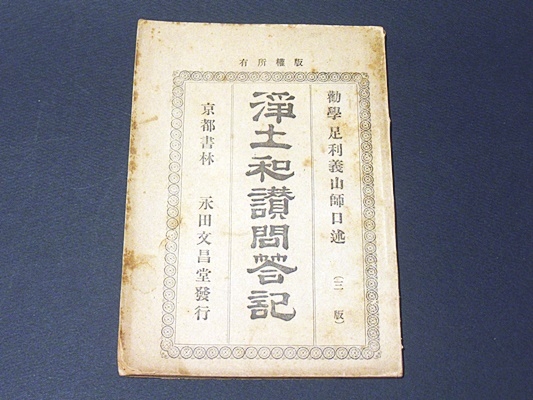 有所權版
勸學 足利義山師口述 （三版）
淨土和讃問答記
京都書林 永田文昌堂發行